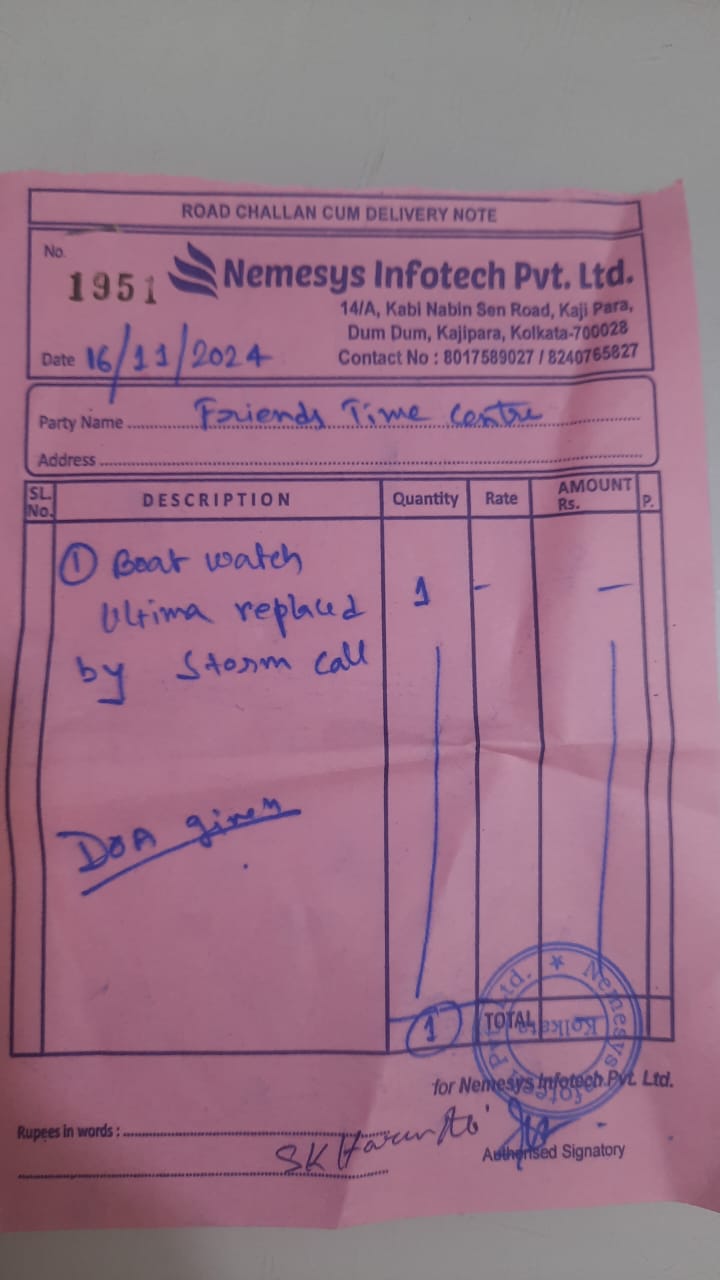 ROAD CHALLAN CUM DELIVERY NOTE
No.
1951
Nemesys Infotech Pvt. Ltd.
14/A, Kabi Nabin Sen Road, Kaji Para,
Dum Dum, Kajipara, Kolkata-700028
Date 16/11/2024
Contact No : 8017589027 / 8240765827
Party Name Friends Time Centre
Address
SL. No. DESCRIPTION Quantity Rate AMOUNT Rs. P.
① Boat watch 1 - -
Ultima replaced
by Storm call
DOA given
1 TOTAL
Nemesys Infotech Pvt. Ltd. Kolkata
for Nemesys Infotech Pvt. Ltd.
Rupees in words :
SK
Authorised Signatory